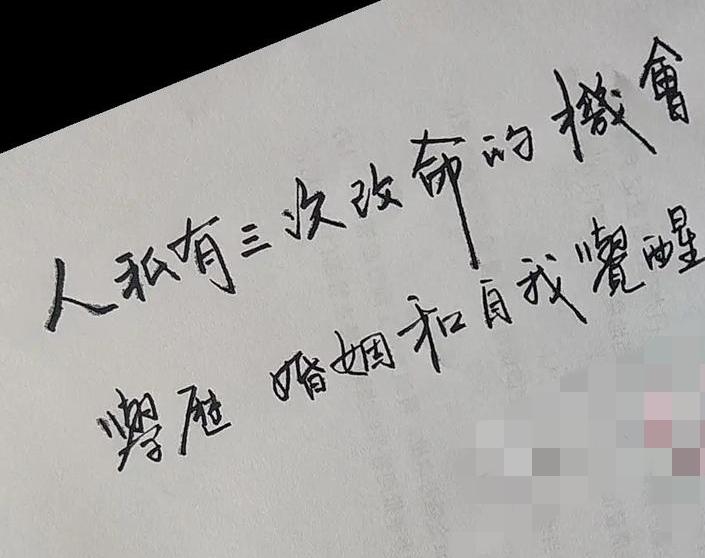 人私有三次改命的機會
學歷 婚姻和自我覺醒